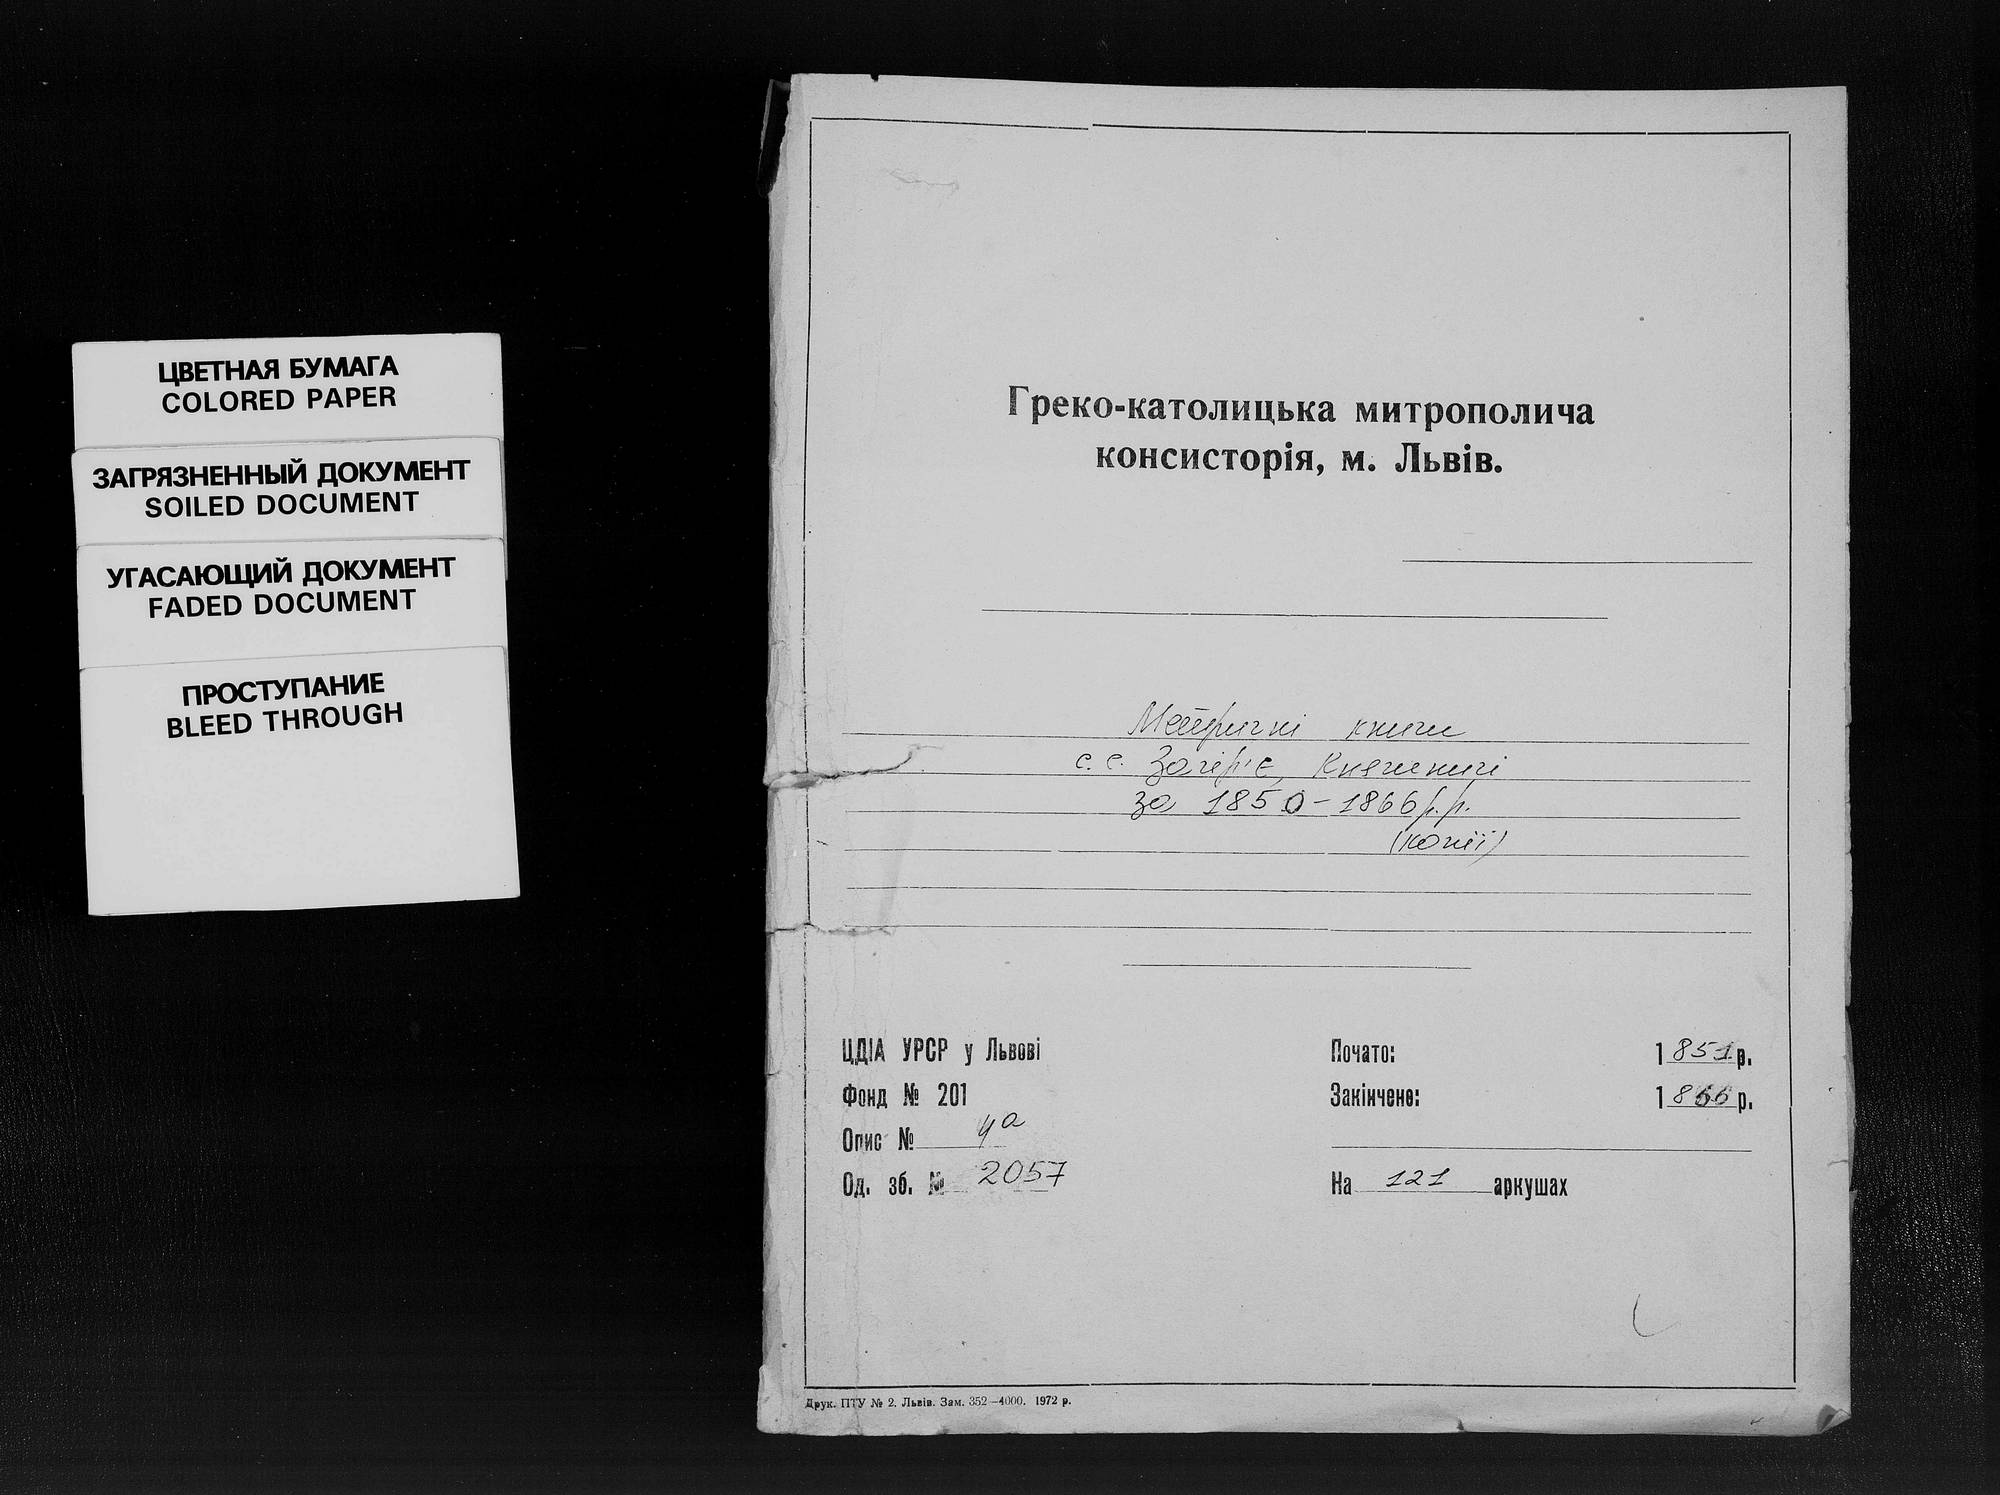 ЦВЕТНАЯ БУМАГА
COLORED PAPER
ЗАГРЯЗНЕННЫЙ ДОКУМЕНТ
SOILED DOCUMENT
УГАСАЮЩИЙ ДОКУМЕНТ
FADED DOCUMENT
ПРОСТУПАНИЕ
BLEED THROUGH
Греко-католицька митрополича
консисторія, м. Львів.
Метричні книги
с.с. Загір'є, Княгиничі
за 1850-1866 р.р.
(копії)
ЦДІА УРСР у Львові
Фонд № 201
Опис № 4а
Од. зб. № 2057
Почато: 1851 р.
Закінчено: 1866 р.
На 121 аркушах
Друк. ПТУ № 2. Львів. Зам. 352—4000. 1972 р.